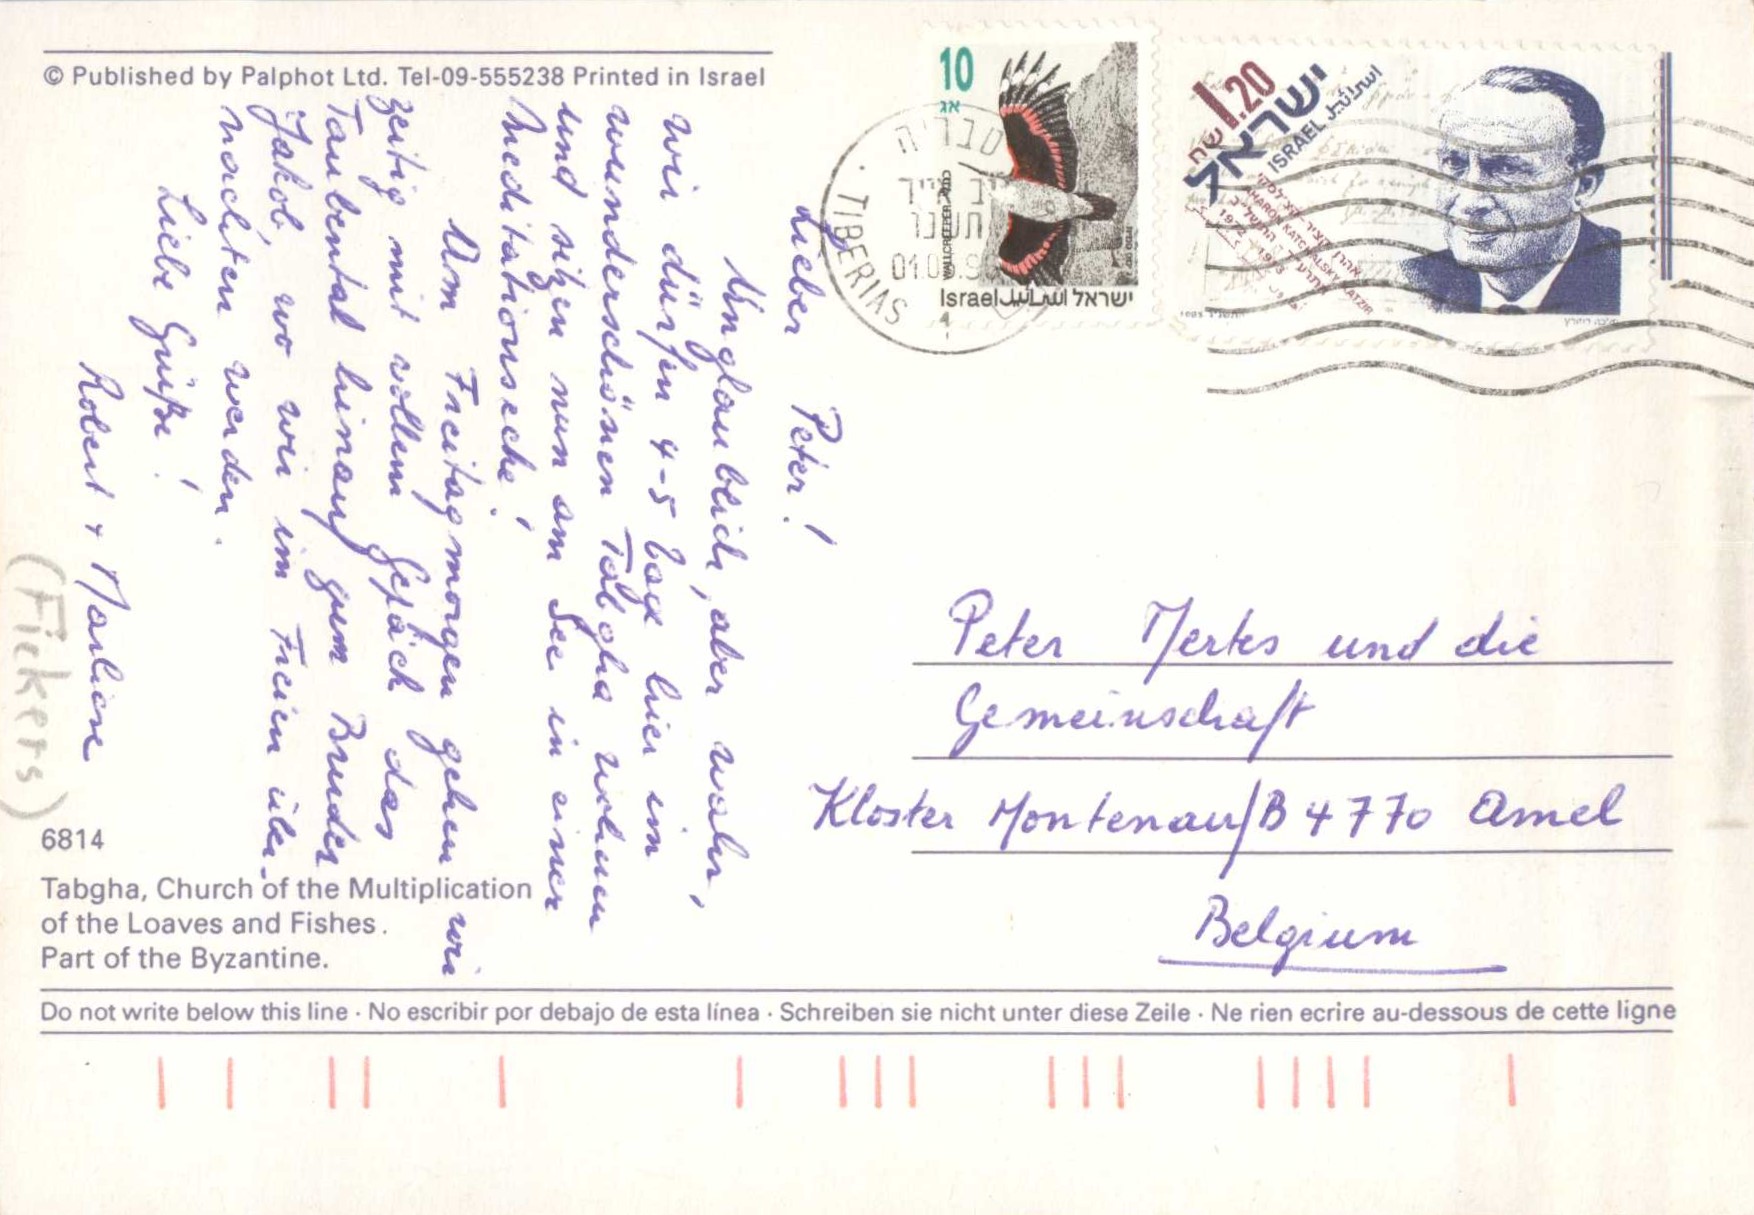 © Published by Palphot Ltd. Tel-09-555238 Printed in Israel
Lieber Peter!
Unglaublich, aber wahr,
wir dürfen 4-5 Tage hier im
wunderschönen Tabgha wohnen
und sitzen nun am See in einer
Meditationsecke!
Am Freitagmorgen gehen wir
zeitig mit vollem Gepäck das
Taubental hinauf zum Bruder
Jakob, wo wir im Freien über-
nachten werden.
Liebe Grüße!
Robert + Marliese
(Fickers)
6814
Tabgha, Church of the Multiplication
of the Loaves and Fishes.
Part of the Byzantine.
10
אג
WALLCREEPER
Israel اسرائيل ישראל
טבריה
TIBERIAS
1.20
שח
ישראל
ISRAEL اسرائيل
AHARON KATCHALSKY KATZIR
Peter Mertes und die
Gemeinschaft
Kloster Montenau/B 4770 Amel
Belgium
Do not write below this line · No escribir por debajo de esta línea · Schreiben sie nicht unter diese Zeile · Ne rien ecrire au-dessous de cette ligne